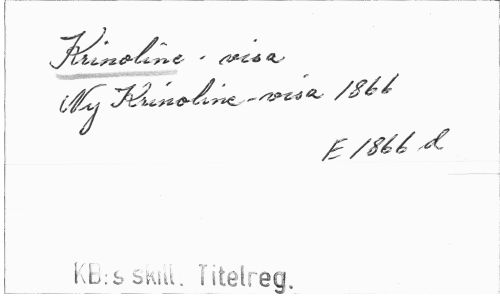 Krinoline - visa
Ny Krinoline-visa 1866
E 1866 d
KB:s skill. Titelreg.